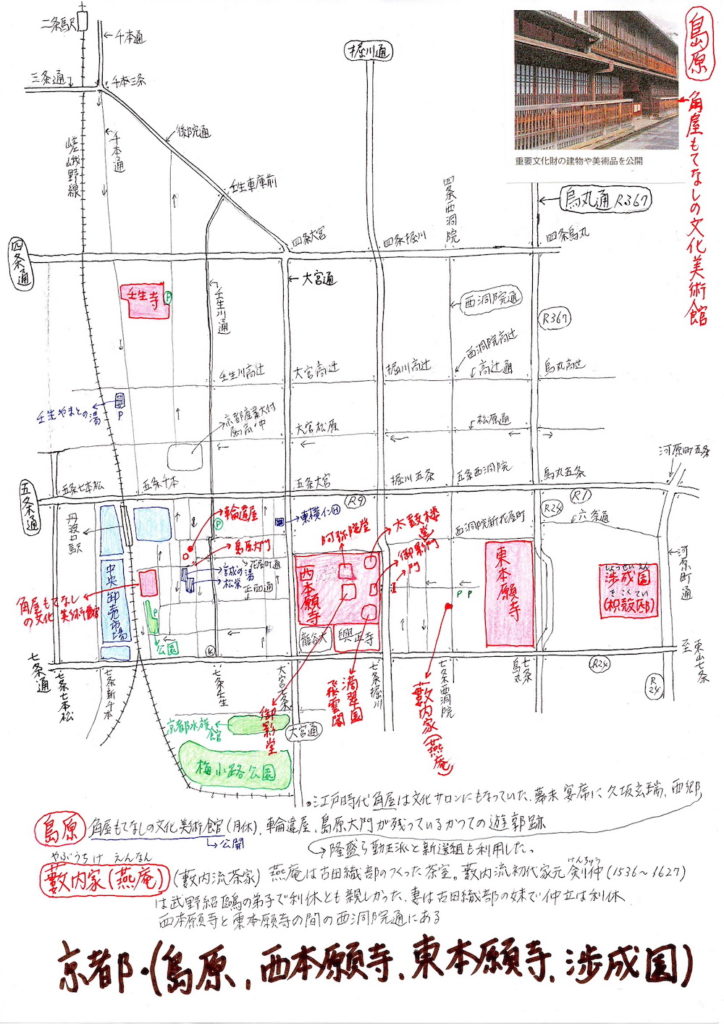 二条駅
千本通
三条通
千本三条
堀川通
島原
角屋もてなしの文化美術館
重要文化財の建物や美術品を公開
嵯峨野線
千本通
後院通
壬生車庫前
四条西洞院
烏丸通 R367
四条通
四条大宮
四条堀川
四条烏丸
大宮通
壬生寺
P
壬生川通
西洞院通
R367
西洞院高辻
高辻通
壬生川高辻
大宮高辻
堀川高辻
烏丸高辻
壬生やまとの湯
P
大宮松原
松原通
河原町五条
五条通
五条七本松
五条千本
五条大宮
堀川五条
五条西洞院
烏丸五条
R9
R1
R24
六条通
丹波口駅
輪違屋
P
東横イン H
阿弥陀堂
太鼓楼
御影門
西洞院新花屋町
島原大門
花屋町通
松栄
正面通
中央卸売市場
角屋もてなしの文化美術館
P
公園
西本願寺
龍谷大
興正寺
P P
東本願寺
しょうせいえん
渉成園
きこくてい
(枳殻邸)
河原町通
七条通
七条七本松
七条新千本
七条壬生
大宮七条
七条堀川
七条西洞院
烏丸
R24
R24
至東山七条
京都水族館
梅小路公園
大宮通
御影堂
飛雲閣
滴翠園
藪内家(燕庵)
•江戸時代角屋は文化サロンにもなっていた、幕末 宴席に久坂玄瑞、西郷
島原 角屋もてなしの文化美術館(月休)、輪違屋、島原大門が残っているかつての遊郭跡
公開
隆盛ら勤王派と新選組も利用した。
やぶうちけ えんなん
藪内家(燕庵) (藪内流茶家) 燕庵は古田織部のつくった茶室。藪内流初代家元 剣仲(1536~1627)
けんちゅう
は武野紹鴎の弟子で利休とも親しかった、妻は古田織部の妹で仲立は利休
西本願寺と東本願寺の間の西洞院通にある
京都・(島原、西本願寺、東本願寺、渉成園)